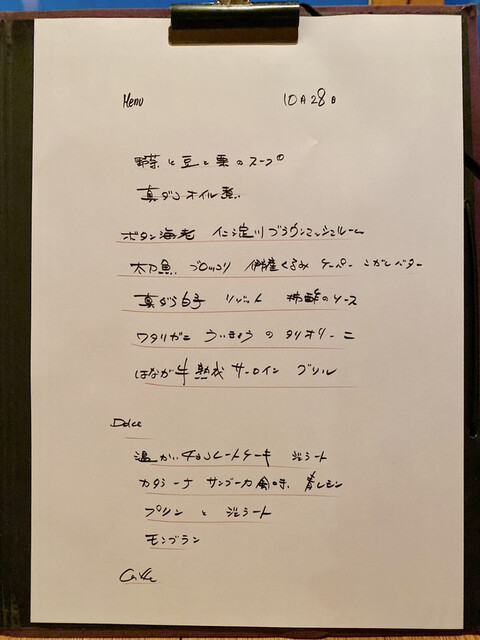 Menu 10月28日
野菜と豆と栗のスープ
真ダコオイル煮
ボタン海老 仁淀川ブラウンマッシュルーム
太刀魚 ブロッコリ くるみ ケーパー こがしバター
真ダラ白子 リゾット のソース
ワタリガニ ういきょうのタリオリーニ
はなが牛 熟成 サーロイン グリル
Dolce
温かいチョコレートケーキ ジェラート
カタラーナ サンブーカ風味 青レモン
プリンとジェラート
モンブラン
Caffe